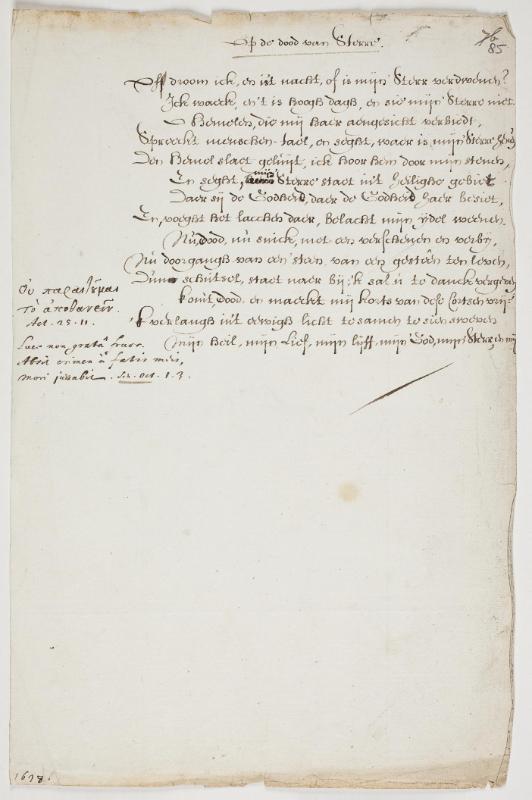 Op de dood van Sterre.
85
Off droom ick, en is't nacht, of is mijn Sterr verdwenen?
Ick waeck, en 't is hoogh dagh, en sie mijn Sterre niet.
O Hemelen, die mij haer aengesicht verbiedt,
Spreeckt menschen-tael, en seght, waer is mijn Sterre henen?
Den Hemel slaet geluijt, ick hoor hem door mijn stenen,
En seght, mijn Sterre staet in't heilighe gebiet
Daer sij de Godheid, daer de Godheid haer besiet,
En, voeght het lacchen daer, belacht mijn ydel weenen.
Nu, Dood, nu snick, met een verschenen en verby,
Nu doorgangh van een steen, van een gesteen ten leven,
Dunn schutsel, staet naer bij; 'k sal u te danck vergeven,
Komt, Dood, en maeckt mij korts van dese Cortsen vrij:
'K verlangh in't eewigh licht te samen te sien sweven
Mijn heil, mijn Lief, mijn lijff, mijn God, mijn Sterr, en mij
Οὐ παραιτοῦμαι
τὸ ἀποθανεῖν.
Act. 25. 11.
mori
1.3.